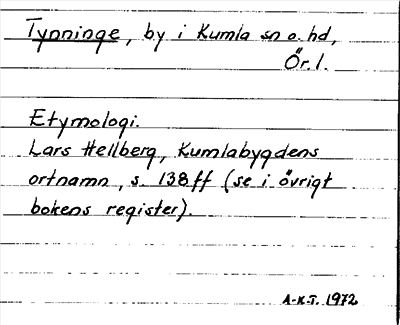 Tynninge, by i Kumla sn o. hd,
Ör. l.
Etymologi.
Lars Hellberg, Kumlabygdens
ortnamn, s. 138 ff (se i övrigt
bokens register).
A-K.T. 1972